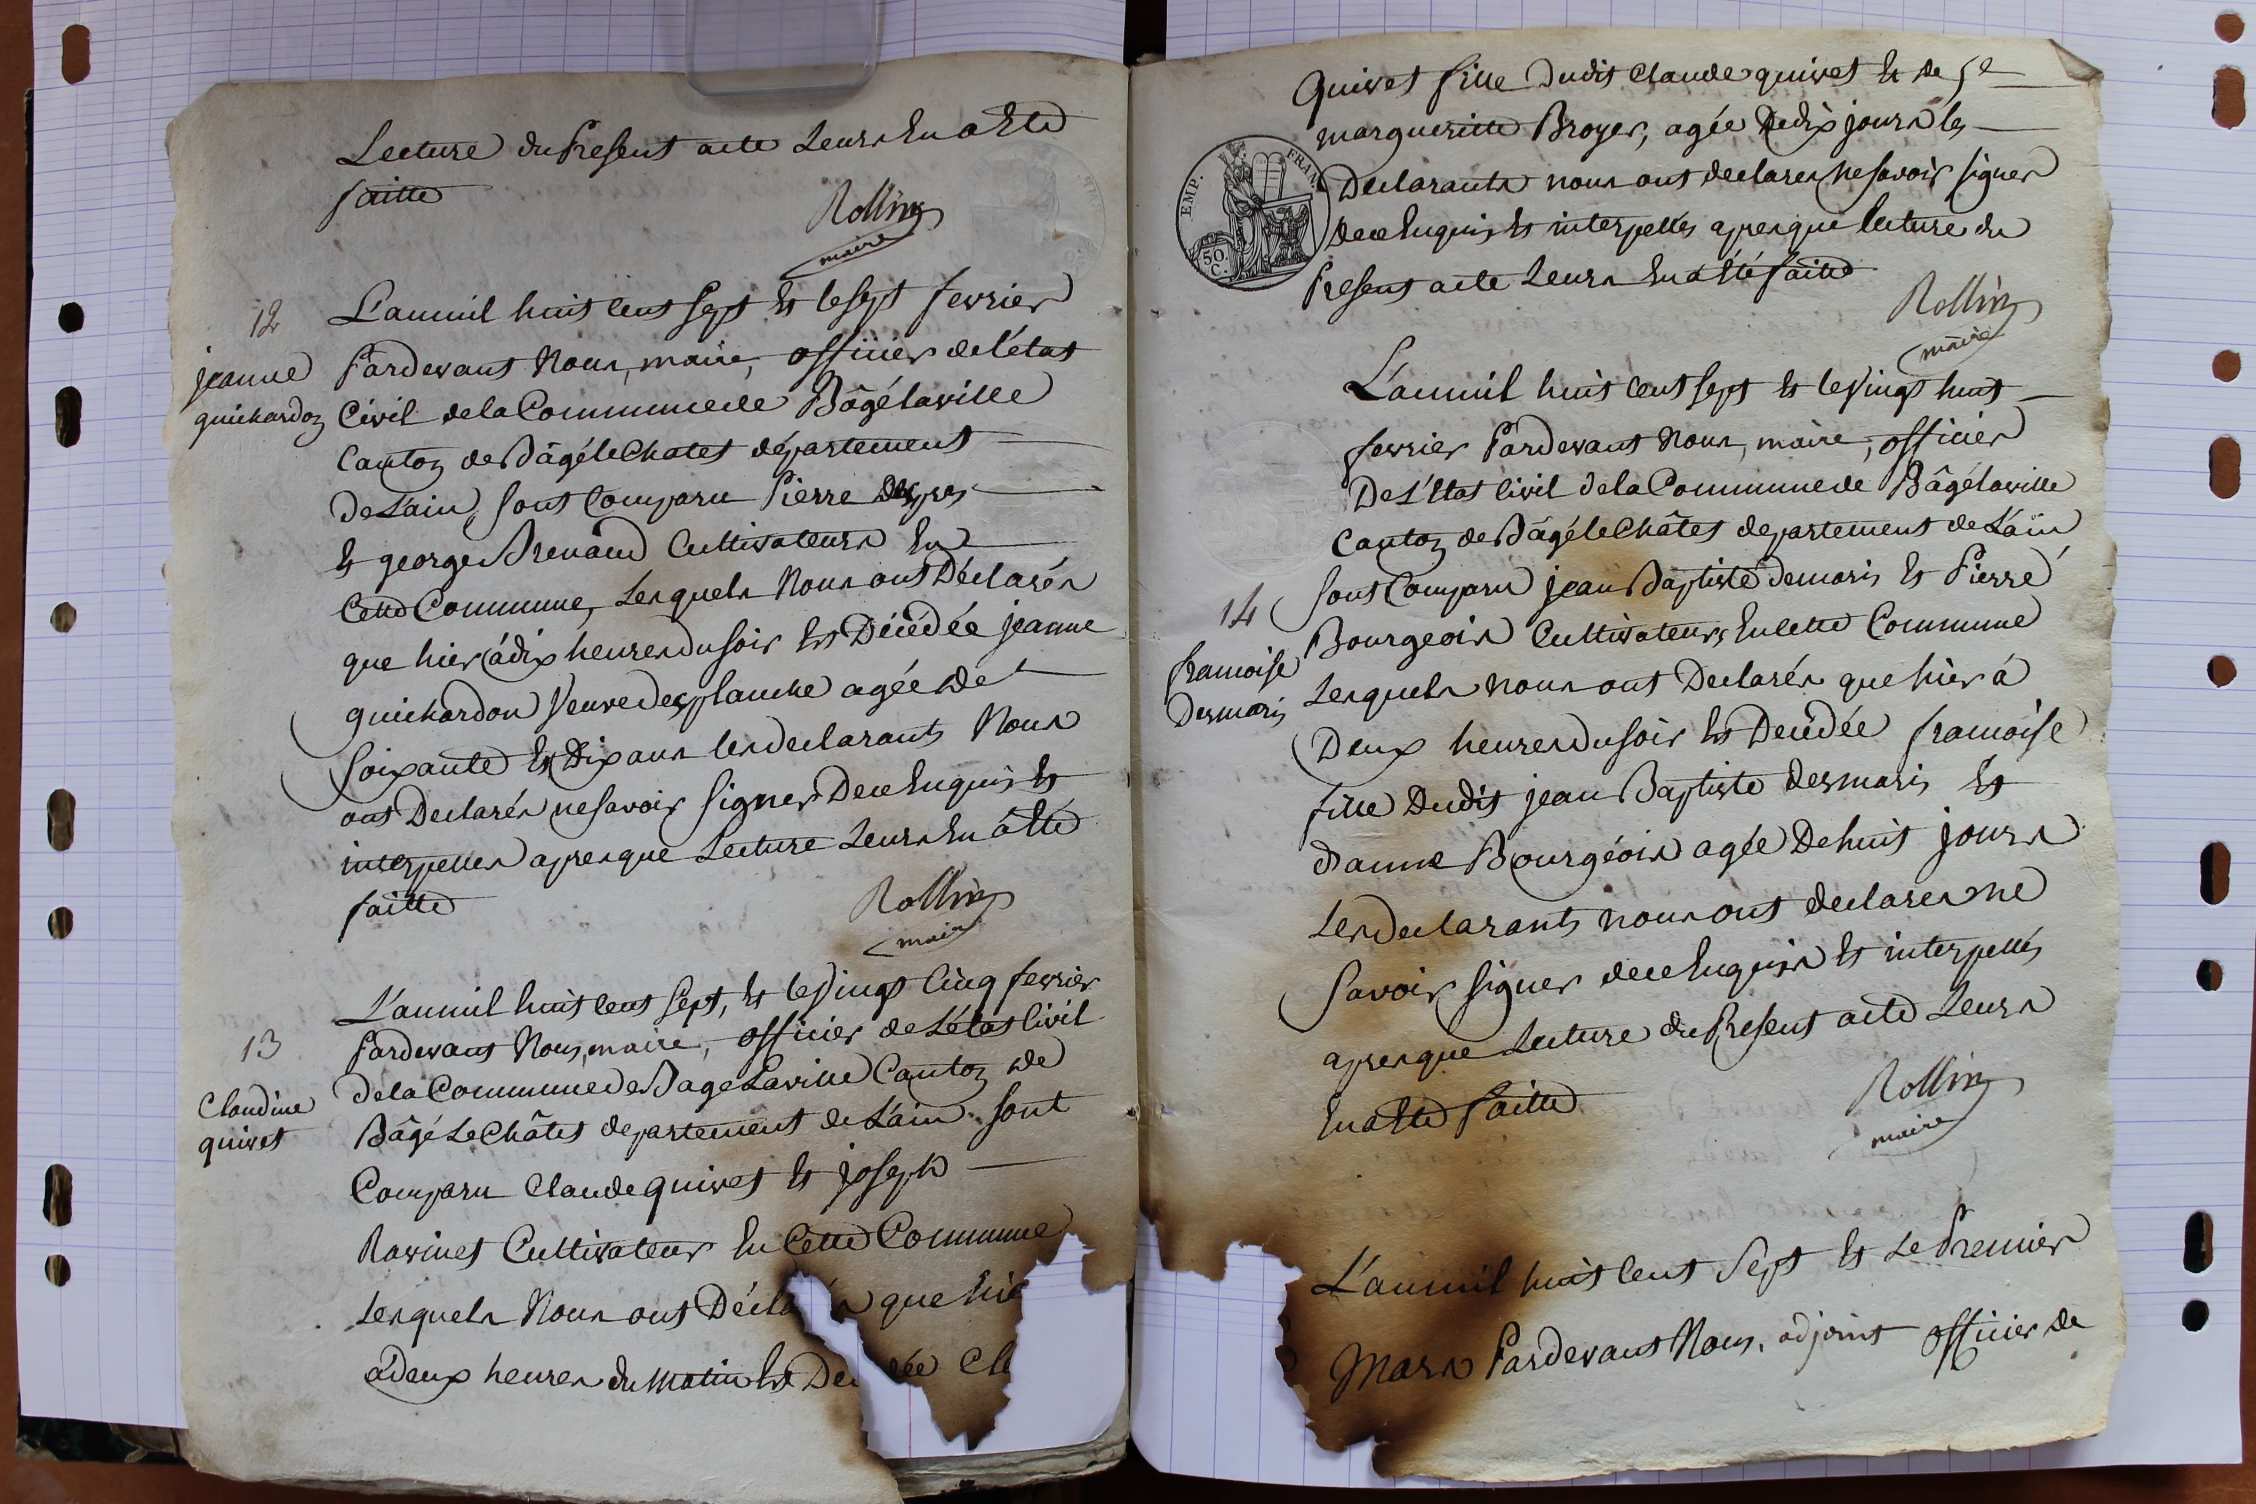 Lecture du Present acte Leurs En a Eté
faitte
Rollin
maire
12
jeanne
guichardon
L'an mil huit cent sept Et le sept fevrier
Pardevant Nous, maire, officier de l'état
Civil de la Commune de Bâgé la ville
Canton de Bâgé le Chatel département
De L'ain, sont Comparu Pierre
Et george Brenaud Cultivateurs En
Cette Commune, Lesquels Nous ont Déclarés
que hier à dix heures du soir Est Décédée jeanne
guichardon Veuve Desplanche agée de
soixante Et Dix ans les declarants Nous
ont Declarés ne savoir signer De ce Enquis Et
interpelles apres que Lecture Leurs En a Eté
faitte
Rollin
maire
13
Claudine
quivet
L'an mil huit cent sept, Et le Vingt Cinq fevrier
Pardevant Nous, maire, officier de L'état Civil
de la Commune de Bage La ville Canton de
Bâgé Le Châtel departement de L'ain sont
Comparu Claude quivet Et joseph
Ravinet Cultivateur En Cette Commune
Lesquels Nous ont Décla s que hie
a deux heures du matin Est Dec dée Cl
Quivet fille Dudit Claude quivet Et de
margueritte Broyer, agée De dix jours les
Declarants nous ont declares ne savoir signer
de ce Enquis Et interpellés apres que lecture du
Present acte Leurs En a Eté faitte
EMP. FRAN.
50.
C.
Rollin
maire
L'an mil huit cent sept Et le Vingt huit
fevrier Pardevant Nous, maire, officier
De L'Etat Civil de la Commune de Bâgé la ville
Canton de Bâgé le Châtel departement de L'ain
14
francoise
Desmaris
sont Comparu jean Baptiste demaris Et Pierre
Bourgeois Cultivateurs En Cette Commune
Lesquels nous ont Declarés que hier à
Deux heures du soir Est Decédée francoise
fille Dudit jean Baptiste desmaris Et
d'anne Bourgéois agée De huit jours
Les declarants nous ont declares ne
savoir signer de ce Enquis Et interpellés
apres que Lecture du Present acte Leurs
En a Eté faitte
Rollin
maire
L'an mil huit Cent Sept Et Le Premier
Mars Pardevant Nous, adjoint officier de